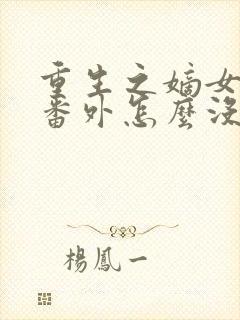 重生之嫡女
番外怎麼沒
楊鳳一